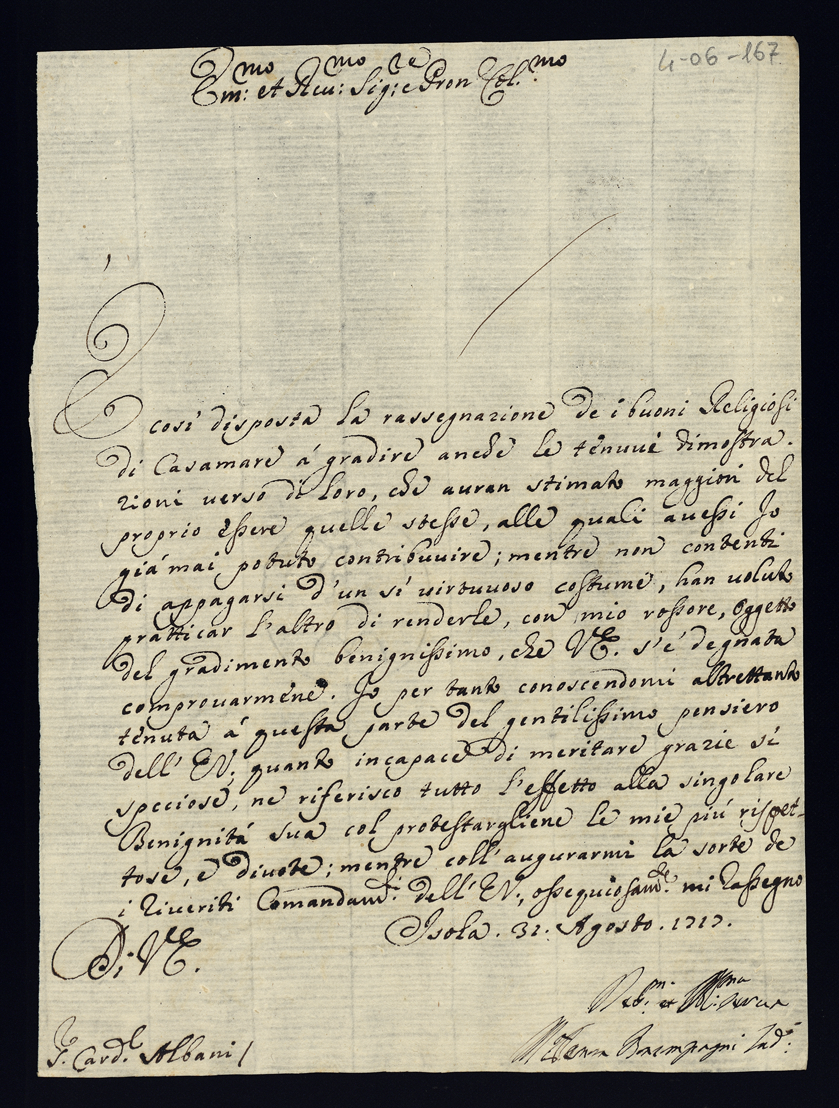 4-06-167
Em:mo et Reu:mo Sig:re e Pron Col.mo
E cosi disposta la rassegnazione de i buoni Religiosi
di Casamare á gradire anche le ténuué dimostra-
zioni uerso di loro, che auran stimato maggiori del
proprio éssere quelle stesse, alle quali auessi Io
giá mai potuto contribuuire; mentre non contenti
di appagarsi d'un sí uirtuuoso costumé, han uoluto
pratticar l'altro di renderle, con mio rossore, oggetto
del gradimento benignissimo, che VE. s'é degnata
comprouarméne. Io per tanto conoscendomi altrettanto
ténuta á questa parte del gentilissimo pensiero
dell' EV. quanto incapace di meritare grazie sí
speciose, ne riferisco tutto l'effetto alla singolare
Benignitá sua col protestargliene le mie piú rispet-
tose, e diuote; mentre coll'augurarmi la sorte de
i riueriti Comandam.ti dell' EV., ossequiosam.te mi rassegno
Di VE.
Isola. 31. Agosto. 1717.
S. Card.l Albani /
Boncompagni